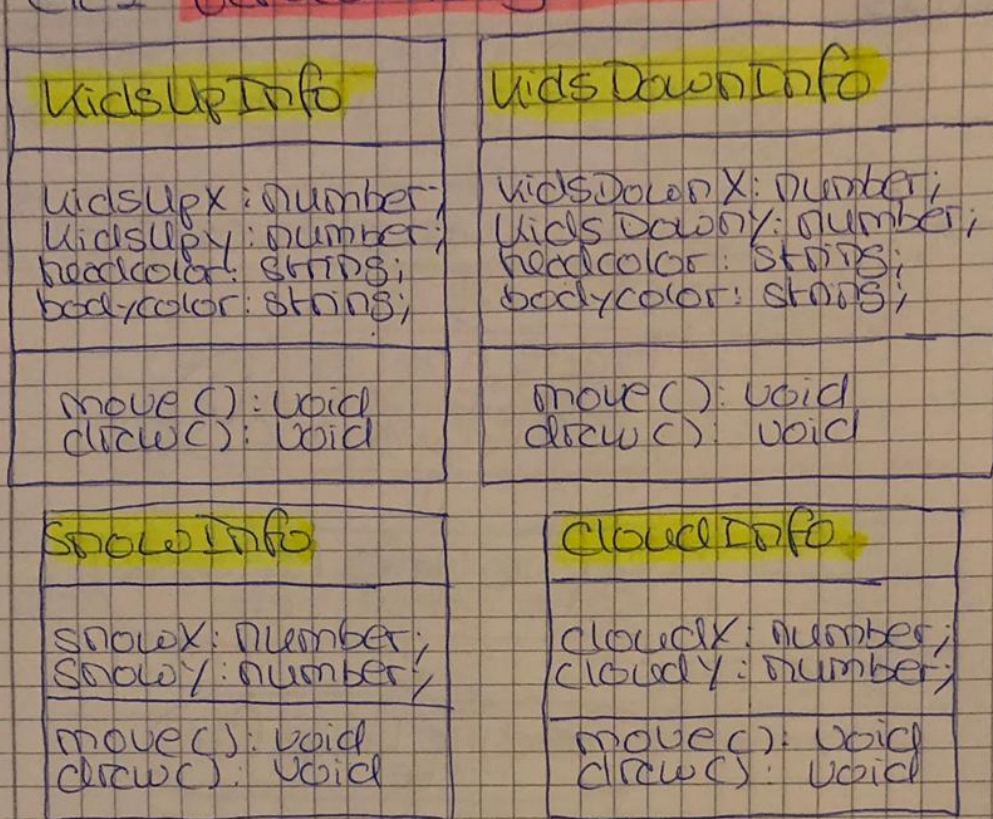 KidsUpInfo
KidsUpX: number;
KidsUpY: number;
headcolor: string;
bodycolor: string;
move(): void
draw(): void
KidsDownInfo
KidsDownX: number;
KidsDownY: number;
headcolor: string;
bodycolor: string;
move(): void
draw(): void
SnowInfo
snowX: number;
snowY: number;
move(): void
draw(): void
CloudInfo
cloudX: number;
cloudY: number;
move(): void
draw(): void